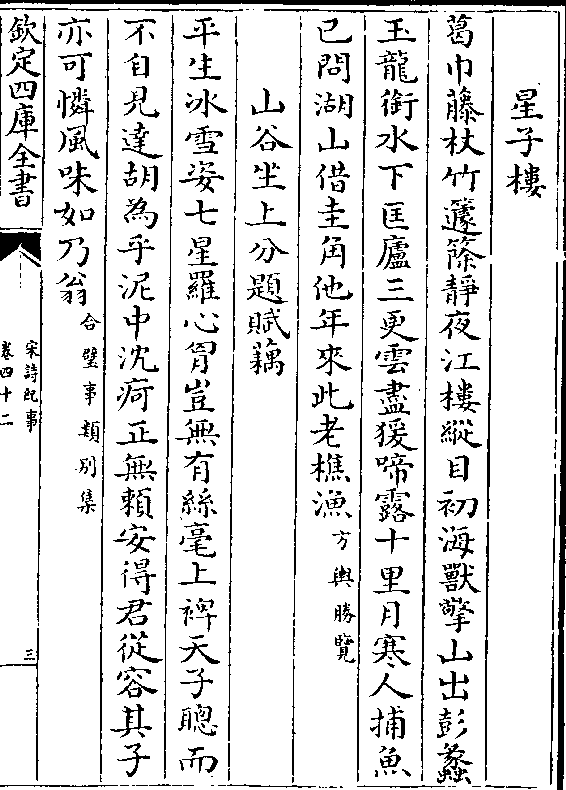 星子樓
葛巾藤杖竹籧篨靜夜江樓縱目初海獸擎山出彭蠡
玉龍銜水下匡廬三更雲盡猨啼露十里月寒人捕魚
已問湖山借圭角他年來此老樵漁方輿勝覽
山谷坐上分題賦藕
平生冰雪姿七星羅心胷豈無有絲毫上裨天子聰而
不自見達胡為乎泥中沈疴正無賴安得君從容其子
亦可憐風味如乃翁合璧事類别集
欽定四庫全書
宋詩紀事
卷四十二
三